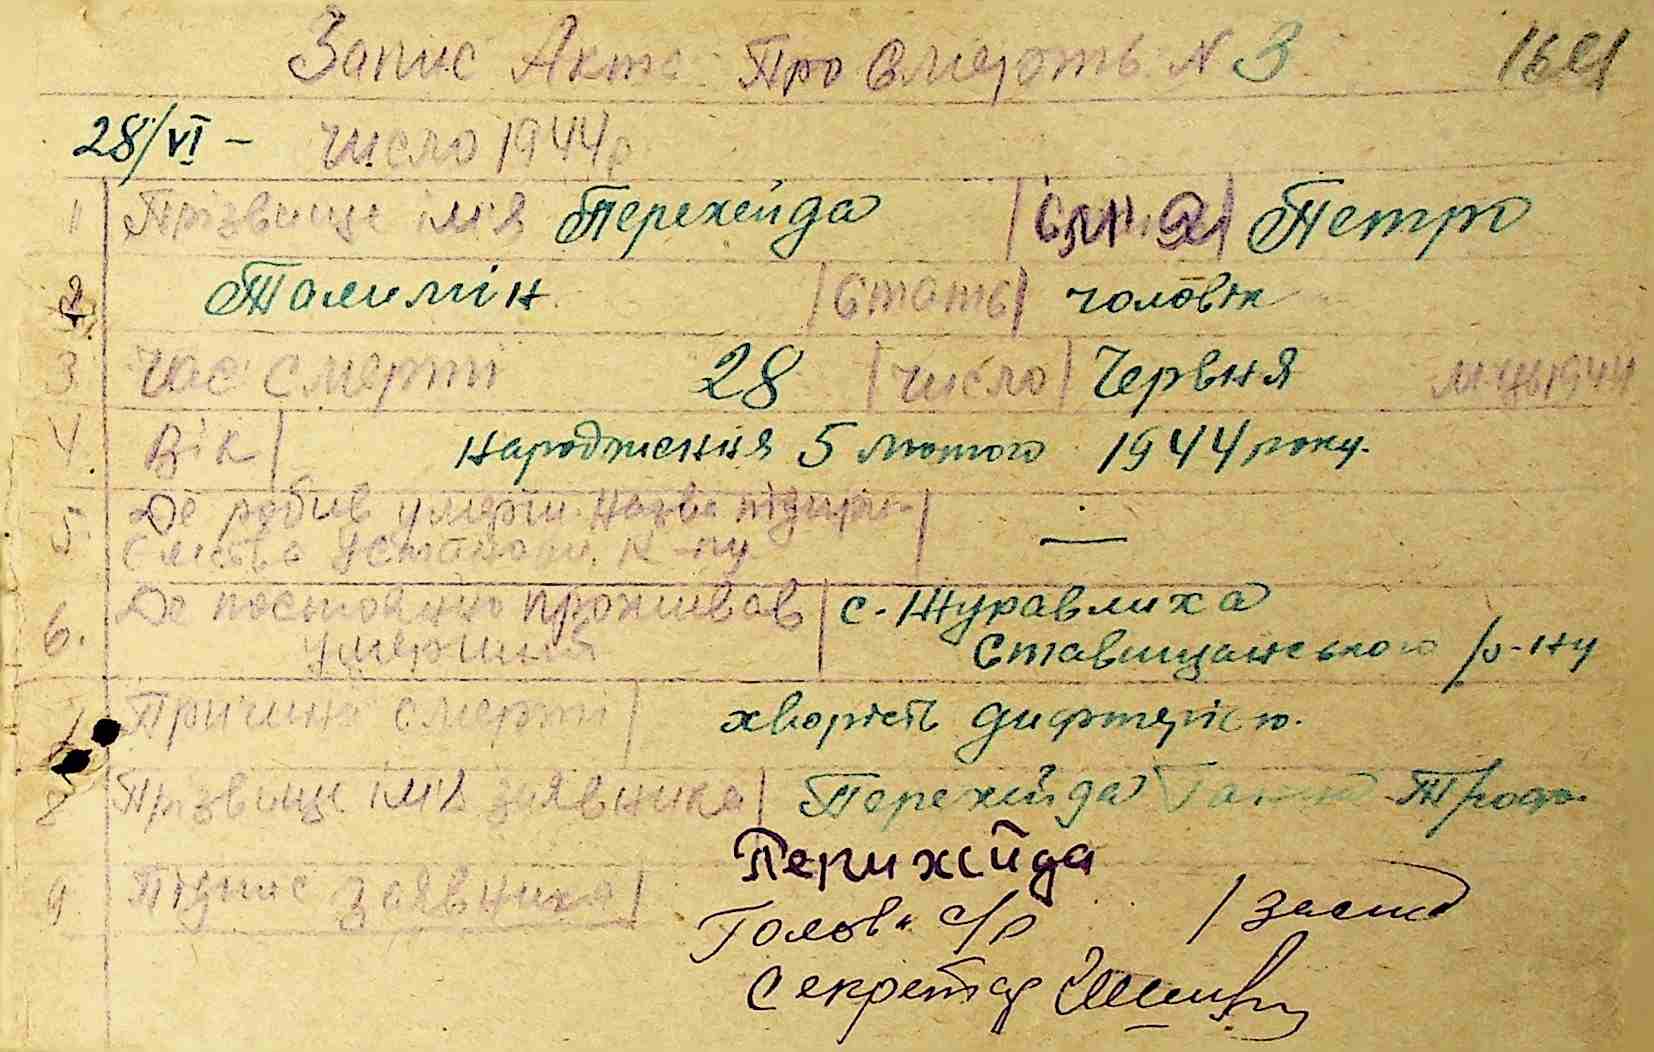 Запис Акта Про Смерть N 3
28/VI – число 1944 р
1 Прізвище ім'я Перехейда | ім'я | Петро
2 | стать | чоловік
3 Час смерти 28 | число | Червня м-ць 1944
4. Вік | народження 5 лютого 1944 року.
5. Де робив умерш. назва підпри-
ємства Установи. к-пу | —
6. До постоянно проживав | с. Журавлиха
умерший Ставищанського р-ну
7 Причина смерти | хворість дифтерією.
8 Прізвище ім'я заявника | Перехейда Троф.
Перихейда
9 Підпис заявника |
Голова с/р
Секретар